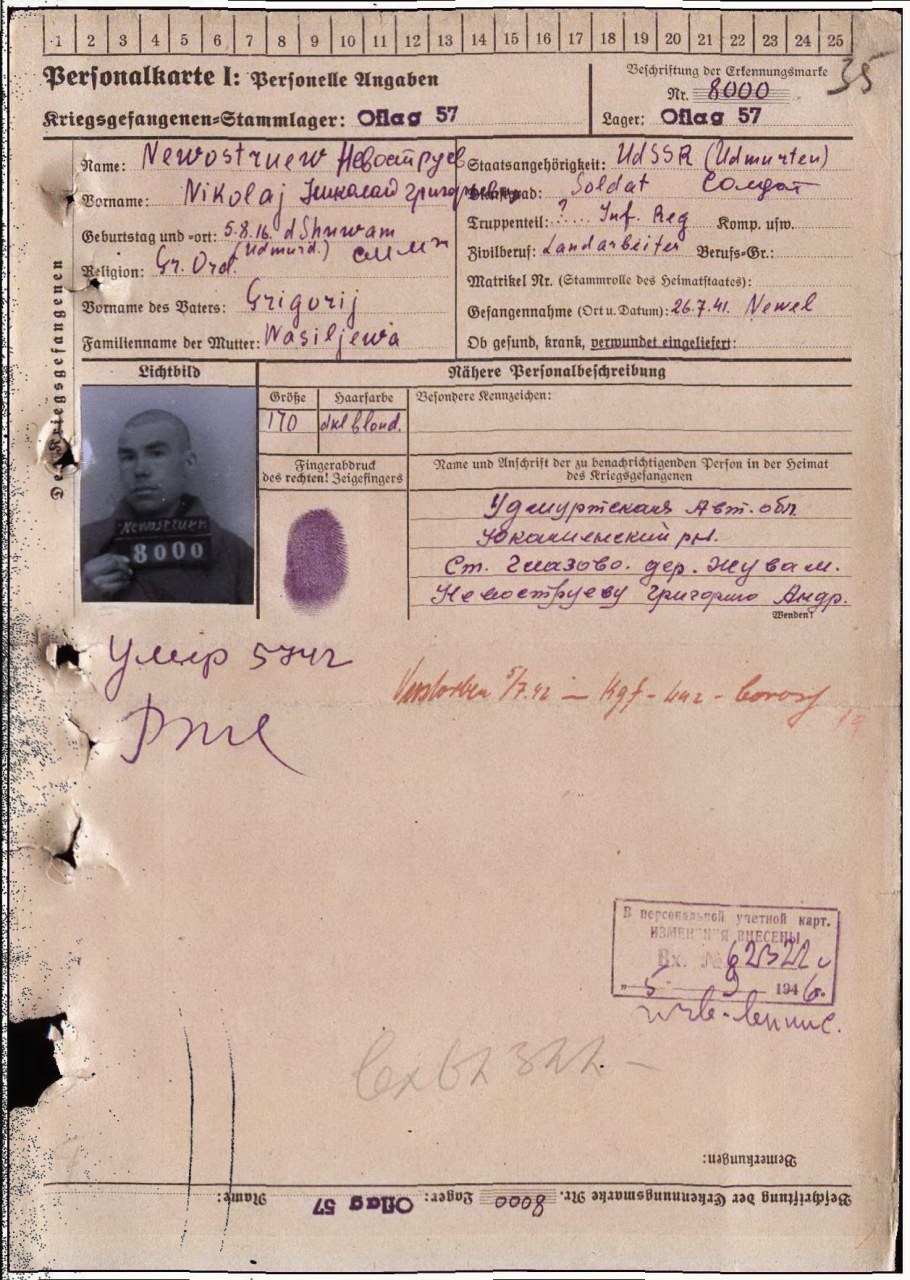 1 2 3 4 5 6 7 8 9 10 11 12 13 14 15 16 17 18 19 20 21 22 23 24 25
35
Personalkarte I: Personelle Angaben
Beschriftung der Erkennungsmarke
Nr. 8000
Kriegsgefangenen-Stammlager: Oflag 57
Lager: Oflag 57
Des Kriegsgefangenen
Name: Newostruew Невоструев
Vorname: Nikolaj Николай Григорьевич
Geburtstag und -ort: 5.8.16. d Shuwam
(Udmurd.)
Religion: Gr. Ord.
Vorname des Vaters: Grigorij
Familienname der Mutter: Wasiljewa
Staatsangehörigkeit: UdSSR (Udmurten)
Dienstgrad: Soldat Солдат
Truppenteil: ? Inf. Reg Komp. usw.
Zivilberuf: Landarbeiter Berufs-Gr.:
Matrikel Nr. (Stammrolle des Heimatstaates):
Gefangennahme (Ort u. Datum): 26.7.41. Newel
Ob gesund, krank, verwundet eingeliefert:
Lichtbild
Nähere Personalbeschreibung
Größe Haarfarbe Besondere Kennzeichen:
170 dkl blond.
Fingerabdruck
des rechten! Zeigefingers
Name und Anschrift der zu benachrichtigenden Person in der Heimat
des Kriegsgefangenen
Удмуртская Авт. обл.
Юкаменский рн.
Ст. Глазово. дер. Жувам.
Невоструеву Григорию Андр.
Wenden!
Newostruew
8000
Умер 5742
Verstorben 5/7.42 – Kgf-
В персональной учетной карт.
ИЗМЕНЕНИЯ ВНЕСЕНЫ
Вх. № 62322
"5" 9 1946.
Вх 62322 –
Bemerkungen:
Beschriftung der Erkennungsmarke Nr. 8000 Lager: Oflag 57 Name: